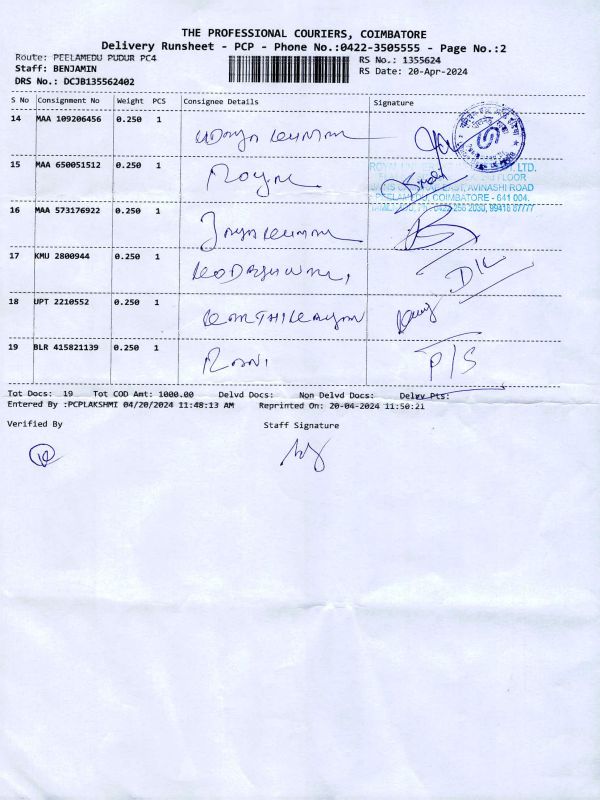 THE PROFESSIONAL COURIERS, COIMBATORE
Delivery Runsheet - PCP - Phone No.:0422-3505555 - Page No.:2
Route: PEELAMEDU PUDUR PC4
Staff: BENJAMIN
DRS No.: DCJB135562402
RS No.: 1355624
RS Date: 20-Apr-2024
S No Consignment No Weight PCS Consignee Details Signature
14 MAA 109206456 0.250 1 Udaya Kumar
15 MAA 650051512 0.250 1
LTD.
FLOOR
EAST, AVINASHI ROAD
COIMBATORE - 641 004.
16 MAA 573176922 0.250 1 Jayakumar
17 KMU 2800944 0.250 1 D/K
18 UPT 2210552 0.250 1 Karthikayan
19 BLR 415821139 0.250 1 Rani P/S
Tot Docs: 19 Tot COD Amt: 1000.00 Delvd Docs: Non Delvd Docs: Delvy Pts:
Entered By :PCPLAKSHMI 04/20/2024 11:48:13 AM Reprinted On: 20-04-2024 11:50:21
Verified By Staff Signature